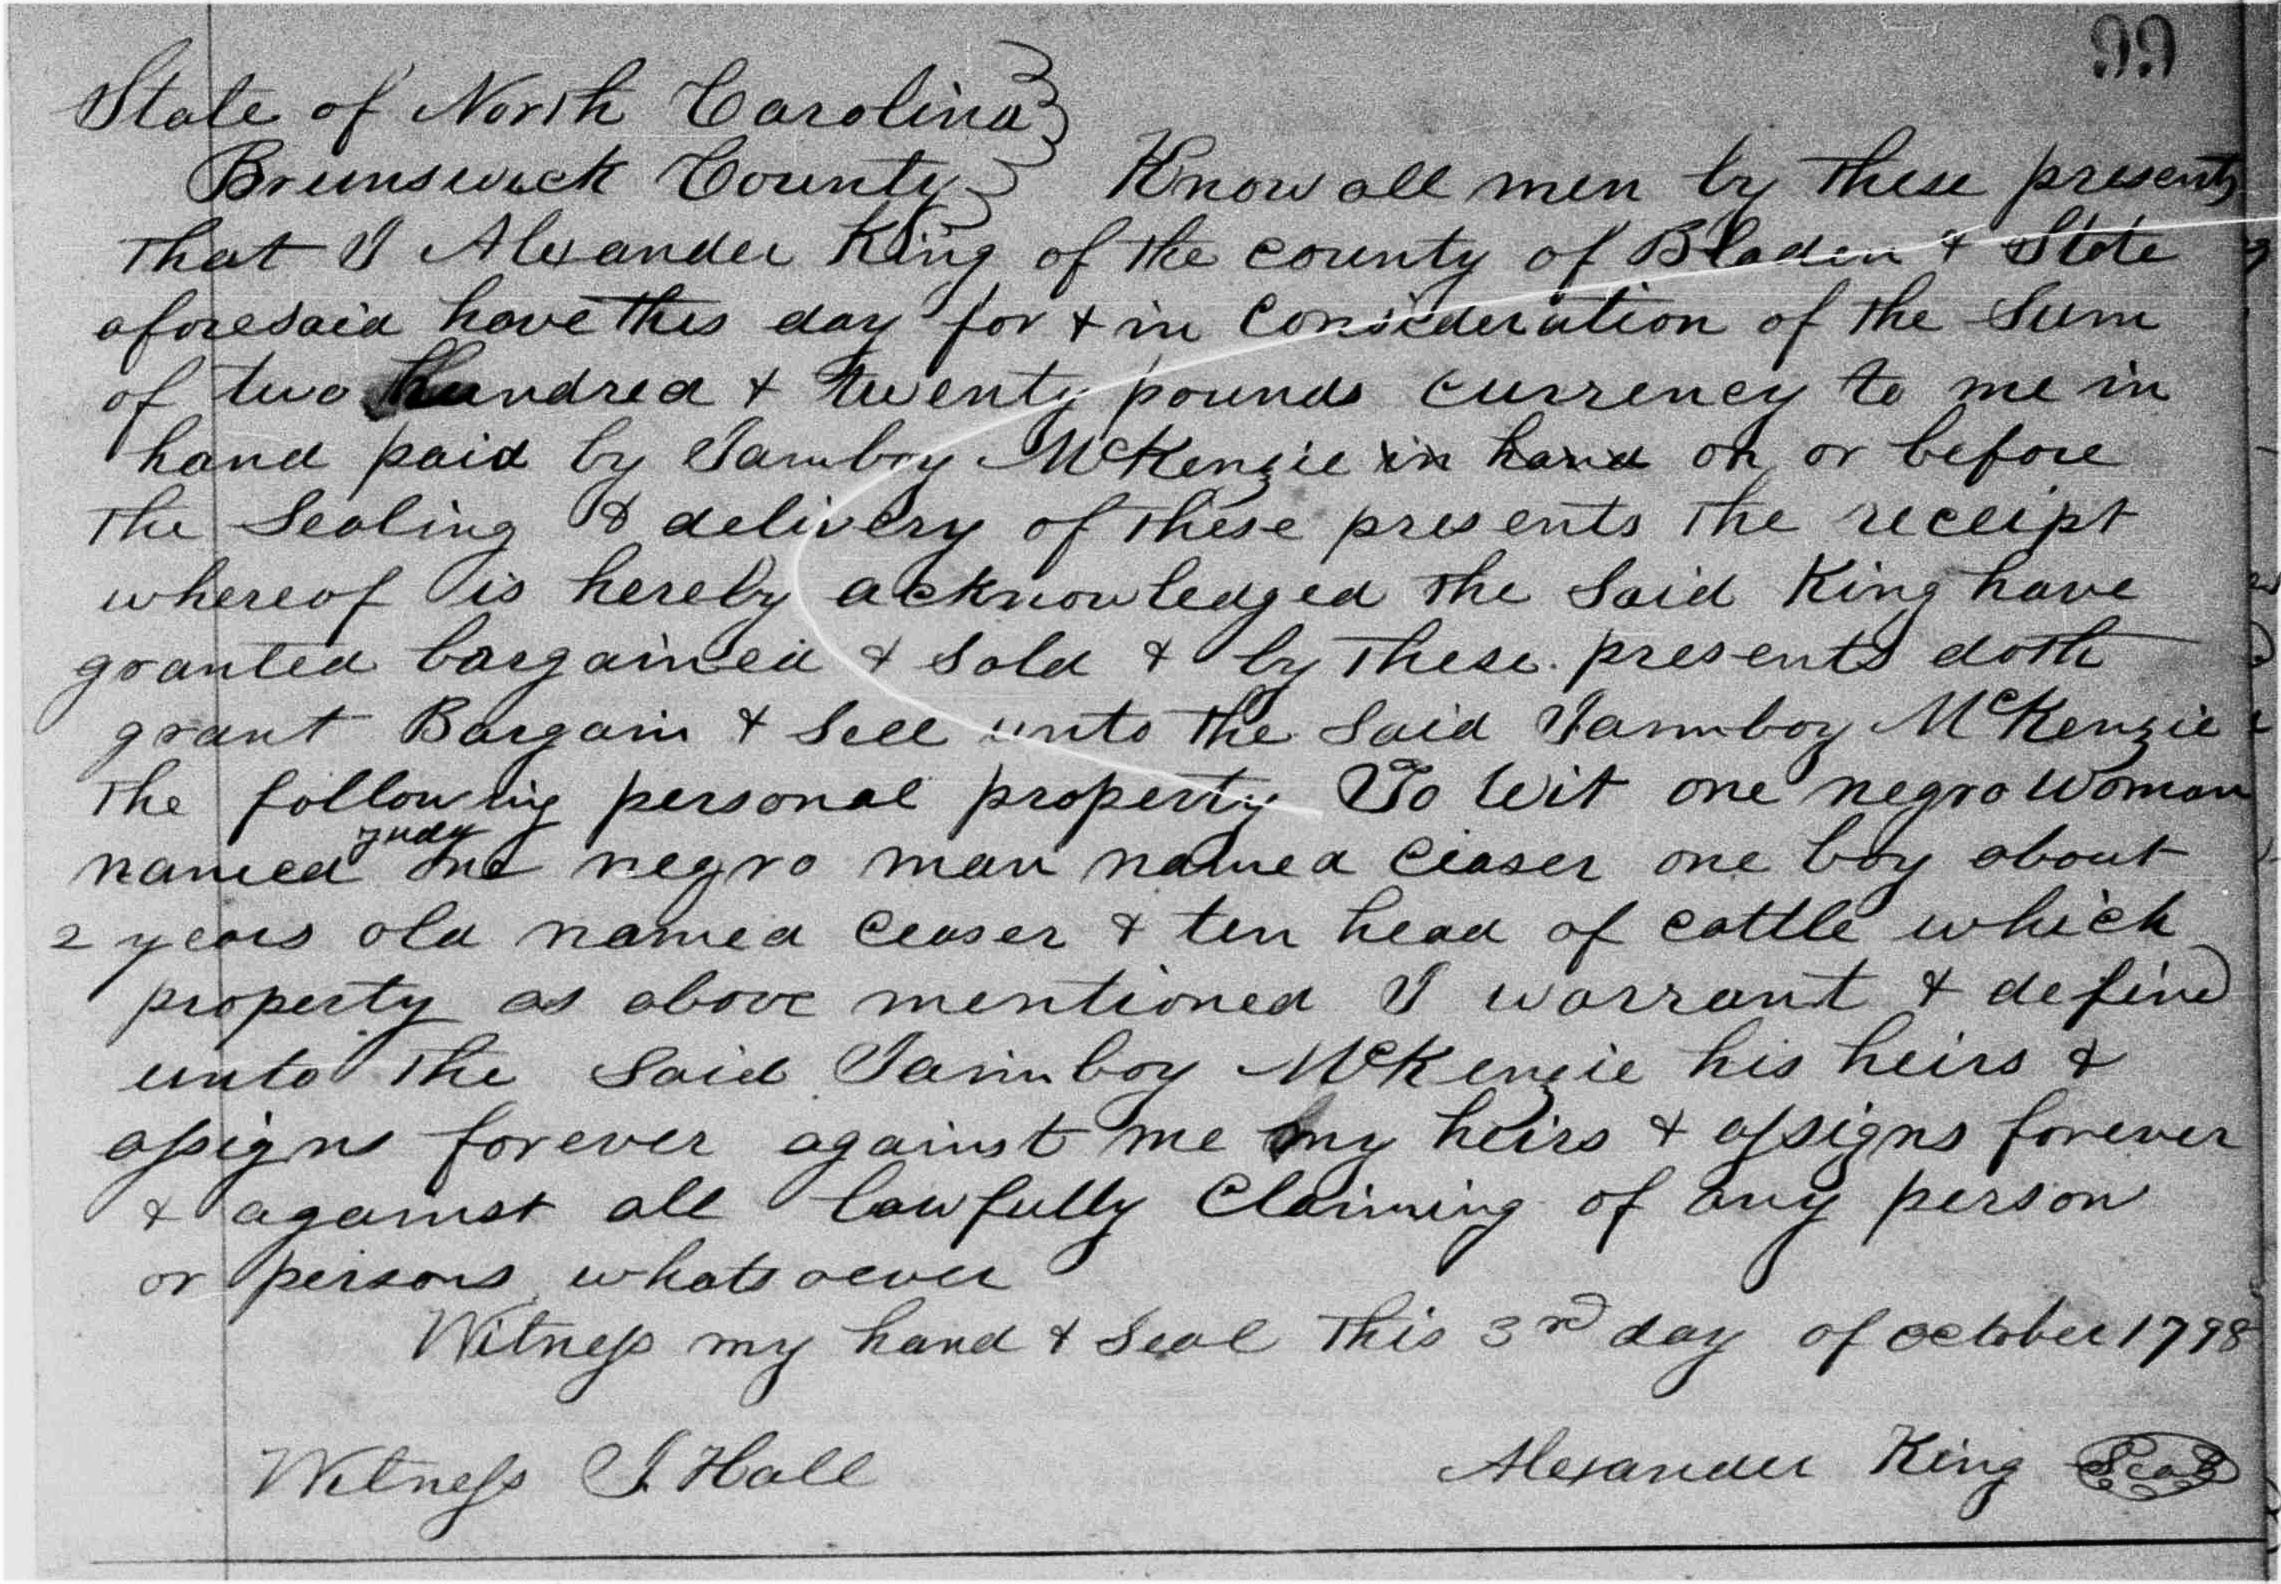 99
State of North Carolina
Brunswick County Know all men by these presents
that I Alexander King of the county of Bladen & State
aforesaid have this day for & in Consideration of the Sum
of two hundred & twenty pounds currency to me in
hand paid by Jamboy McKenzie in hand on or before
the Sealing & delivery of these presents the receipt
whereof is hereby acknowledged the Said King have
granted bargained & Sold & by these presents doth
grant Bargain & Sell unto the Said Jamboy McKenzie
the following personal property To Wit one negro Woman
named Judy one negro man named Ceaser one boy about
2 years old named Ceaser & ten head of cattle which
property as above mentioned I warrant & defind
unto the Said Jamboy McKenzie his heirs &
assigns forever against me my heirs & assigns forever
& against all lawfully Claiming of any person
or persons whatsoever
Witness my hand & Seal this 3rd day of october 1798
Witness J. Hall Alexander King Seal